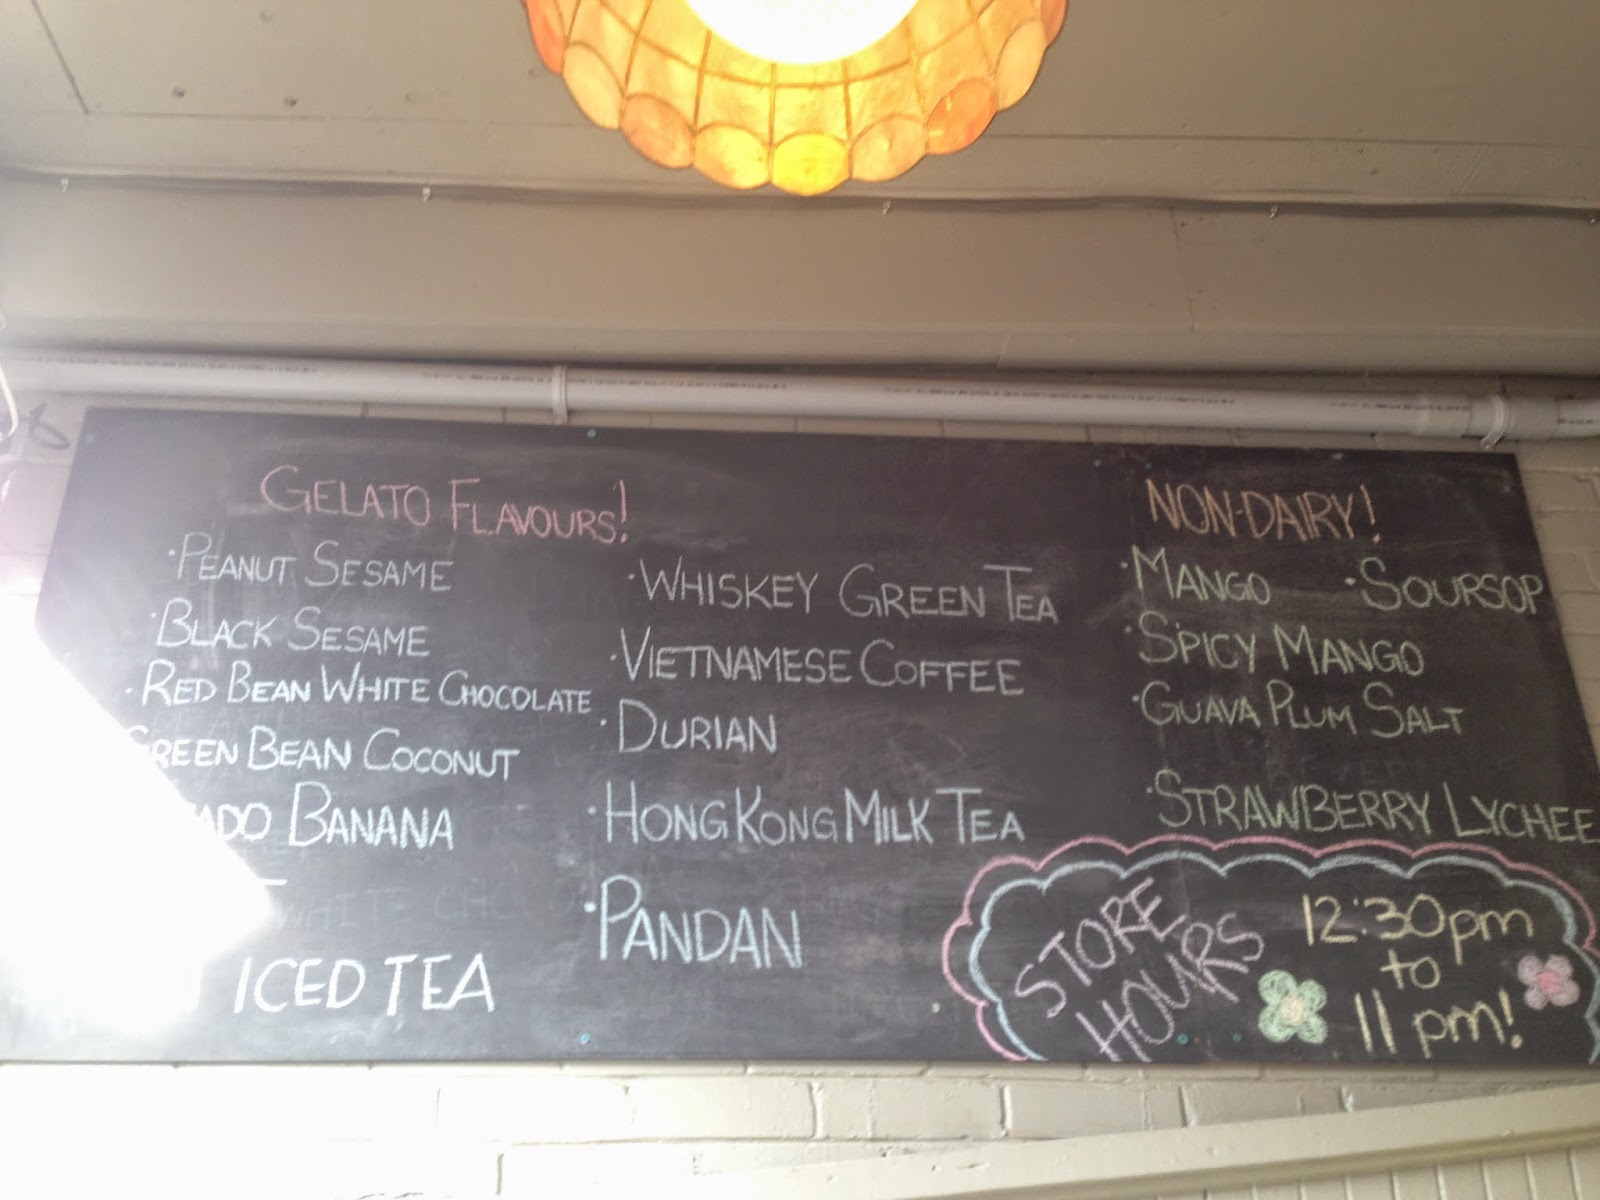 GELATO FLAVOURS!
· PEANUT SESAME
· BLACK SESAME
· RED BEAN WHITE CHOCOLATE
GREEN BEAN COCONUT
BANANA
ICED TEA
· WHISKEY GREEN TEA
· VIETNAMESE COFFEE
· DURIAN
· HONG KONG MILK TEA
· PANDAN
NON-DAIRY!
· MANGO · SOURSOP
· SPICY MANGO
· GUAVA PLUM SALT
· STRAWBERRY LYCHEE
STORE
HOURS
12:30pm
to
11 pm!